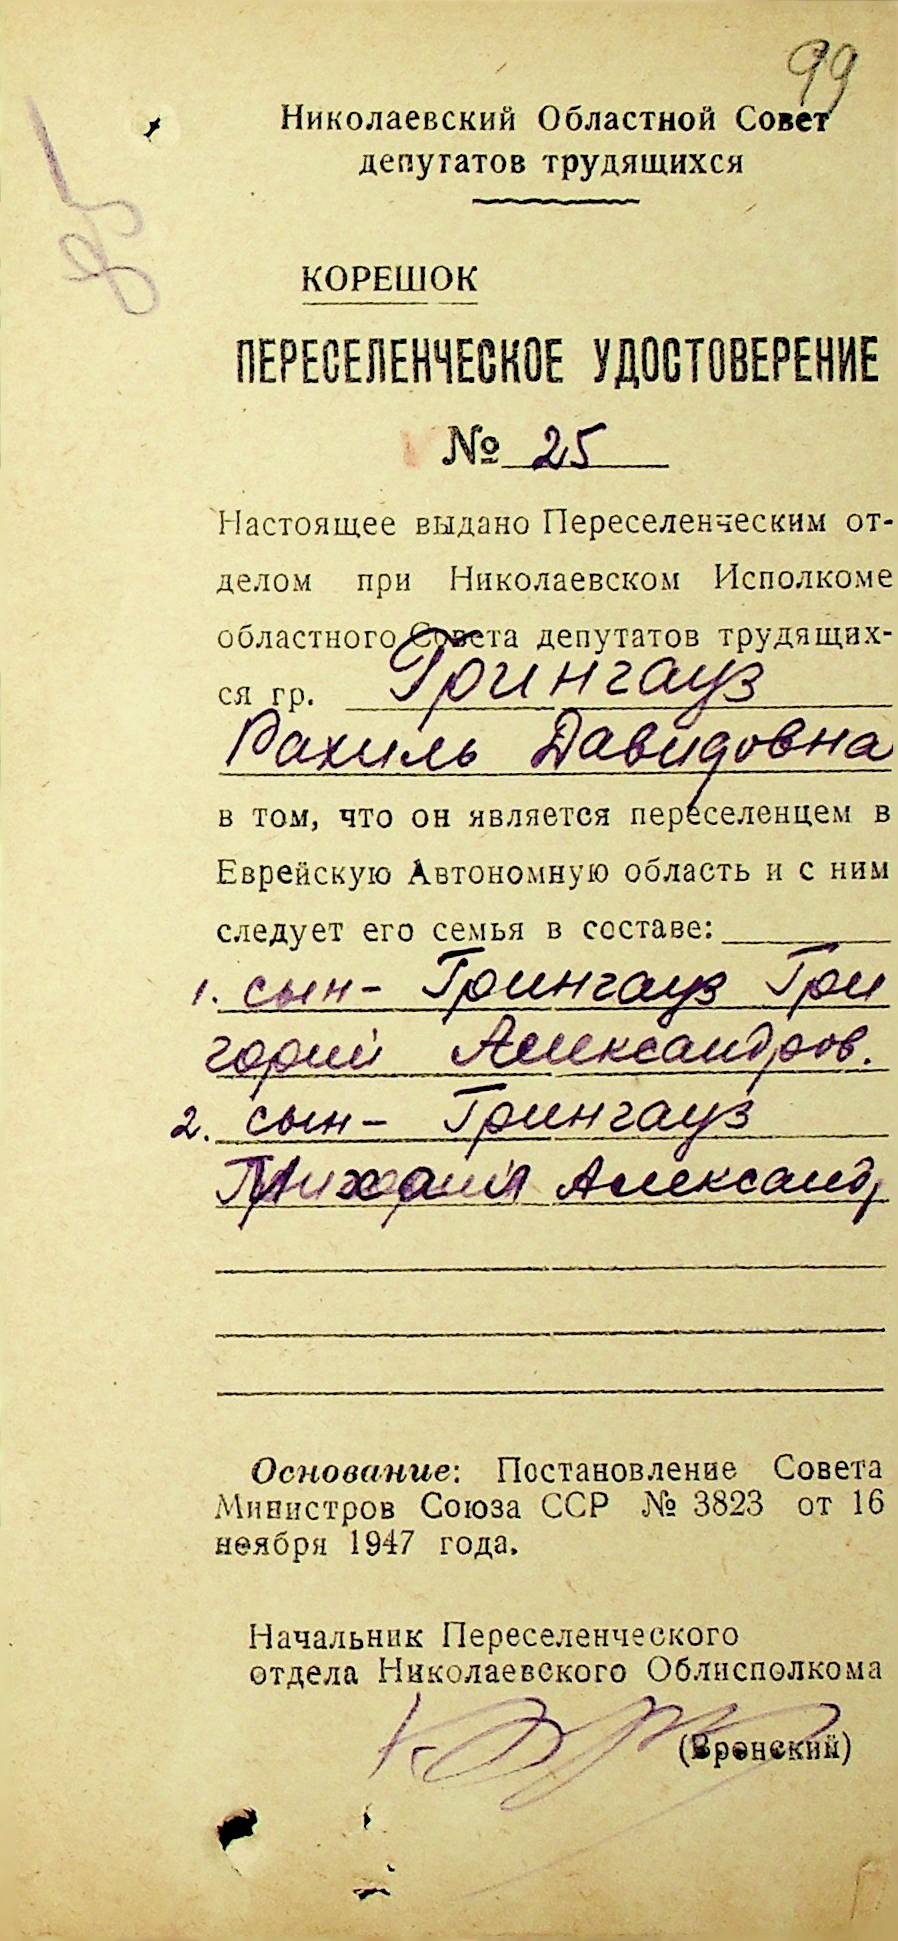 99
Николаевский Областной Совет
депутатов трудящихся
КОРЕШОК
ПЕРЕСЕЛЕНЧЕСКОЕ УДОСТОВЕРЕНИЕ
№ 25
Настоящее выдано Переселенческим от-
делом при Николаевском Исполкоме
областного Совета депутатов трудящих-
ся гр. Грингауз
Рахиль Давидовна
в том, что он является переселенцем в
Еврейскую Автономную область и с ним
следует его семья в составе:
1. сын - Грингауз Гри
горий Александров.
2. сын - Грингауз
Александ,
Основание: Постановление Совета
Министров Союза ССР № 3823 от 16
ноября 1947 года.
Начальник Переселенческого
отдела Николаевского Облисполкома
(Вронский)